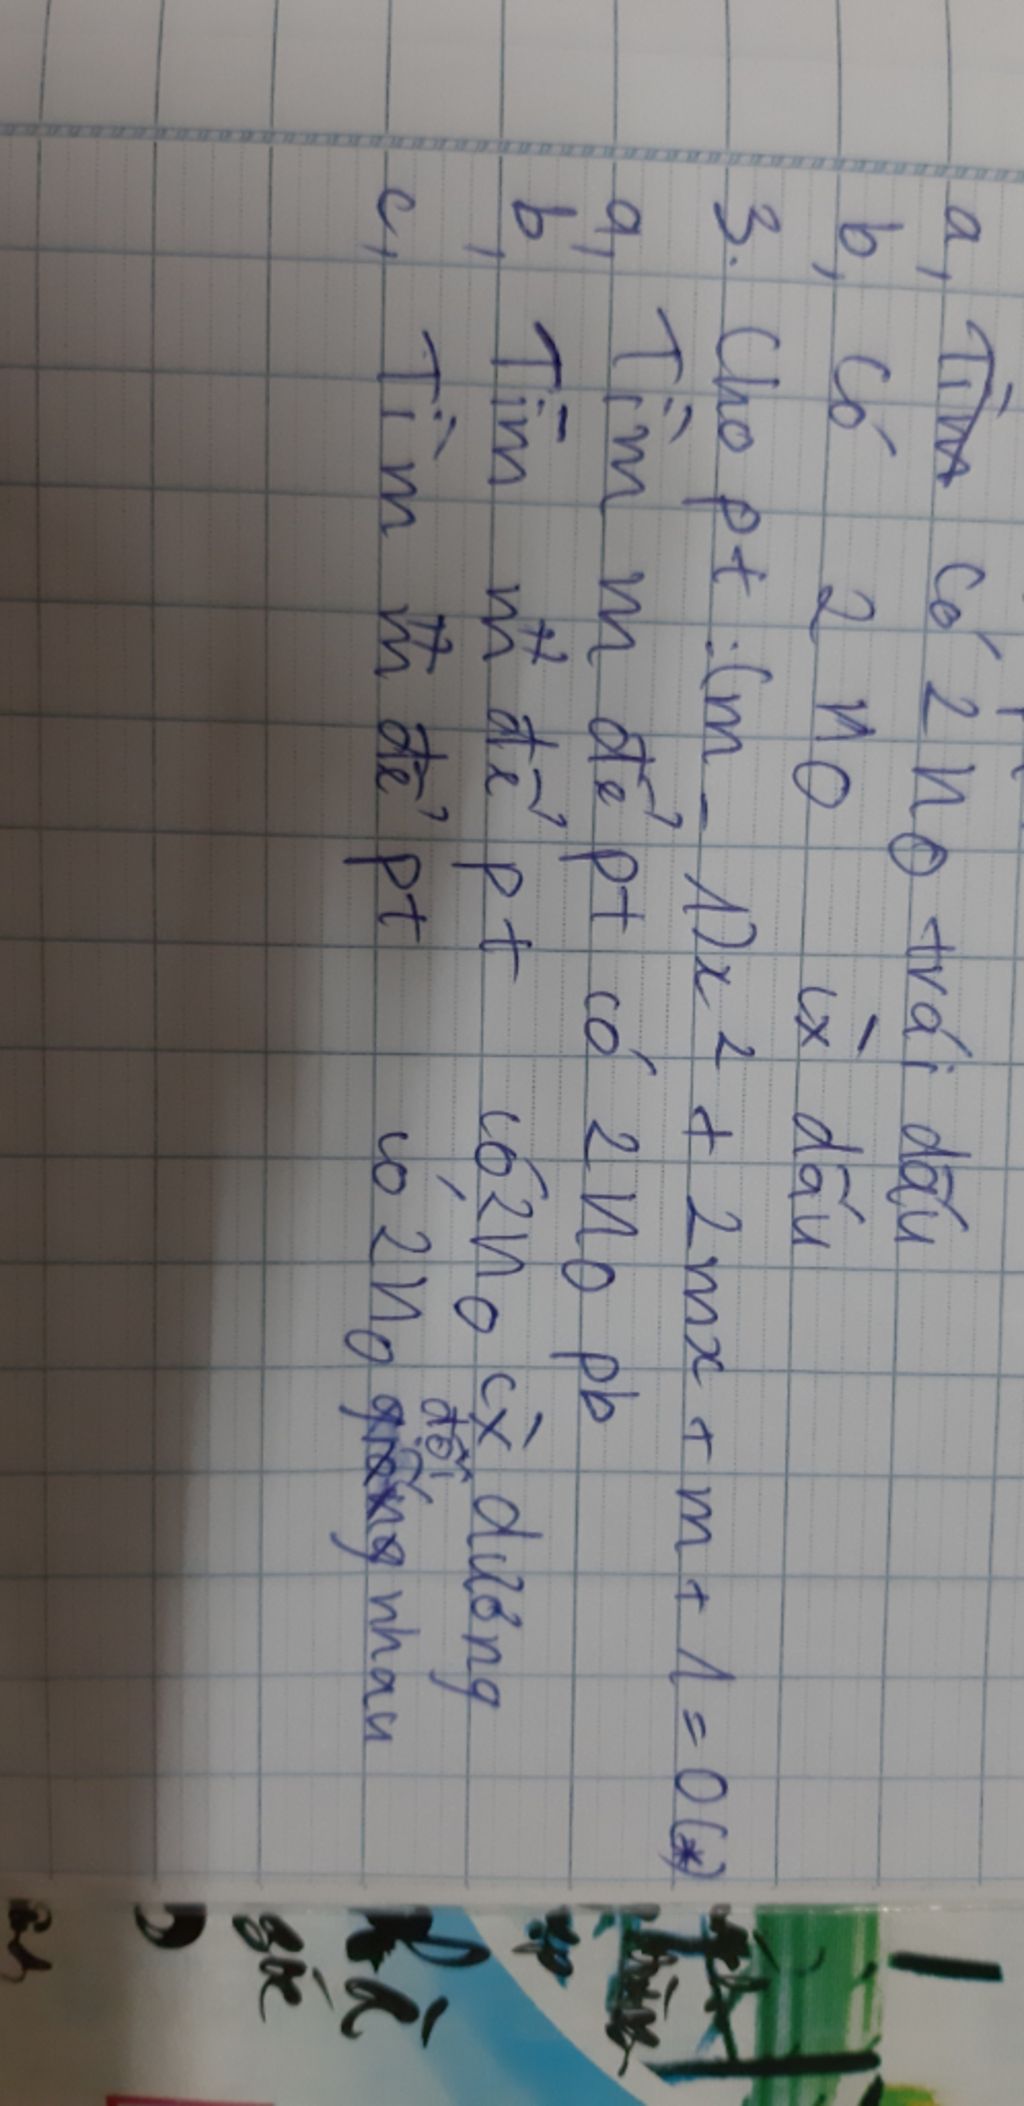 a, Tìm có 2 no trái dấu
b, có 2 no cx dấu
3. Cho pt : (m - 1)x² + 2mx + m + 1 = 0 (*)
a, Tìm m để pt có 2 no pb
b, Tìm m để pt có 2 no cx dương
c, Tìm m để pt có 2 no đối nhau